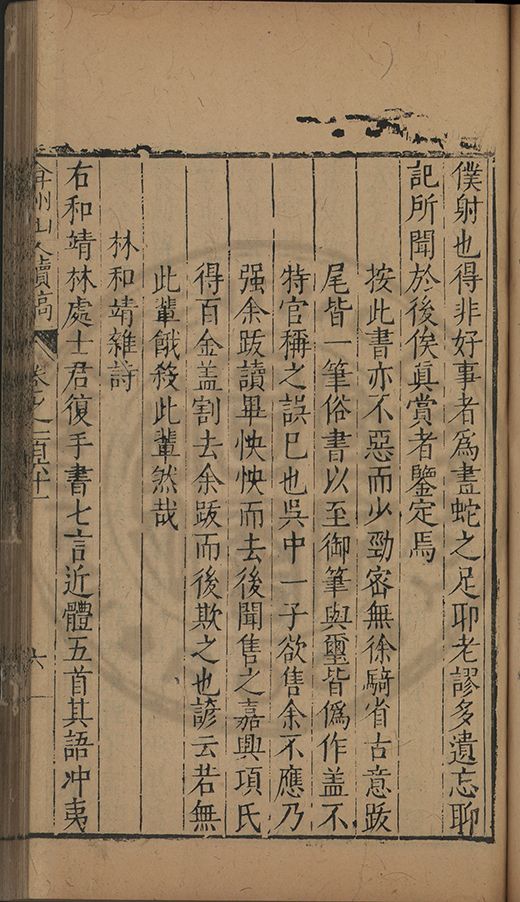 僕射也得非好事者爲畫蛇之足耶老謬多遺忘聊
記所聞於後俟眞賞者鑒定焉
按此書亦不惡而少勁密無徐騎省古意跋
尾皆一筆俗書以至御筆與璽皆僞作盖不
特官稱之誤巳也吳中一子欲售余不應乃
强余跋讀畢怏怏而去後聞售之嘉興項氏
得百金盖割去余跋而後欺之也諺云若無
此輩餓殺此輩然哉
林和靖雜詩
右和靖林處士君復手書七言近體五首其語冲夷
弇州山人續稿
卷之一百六十一
六